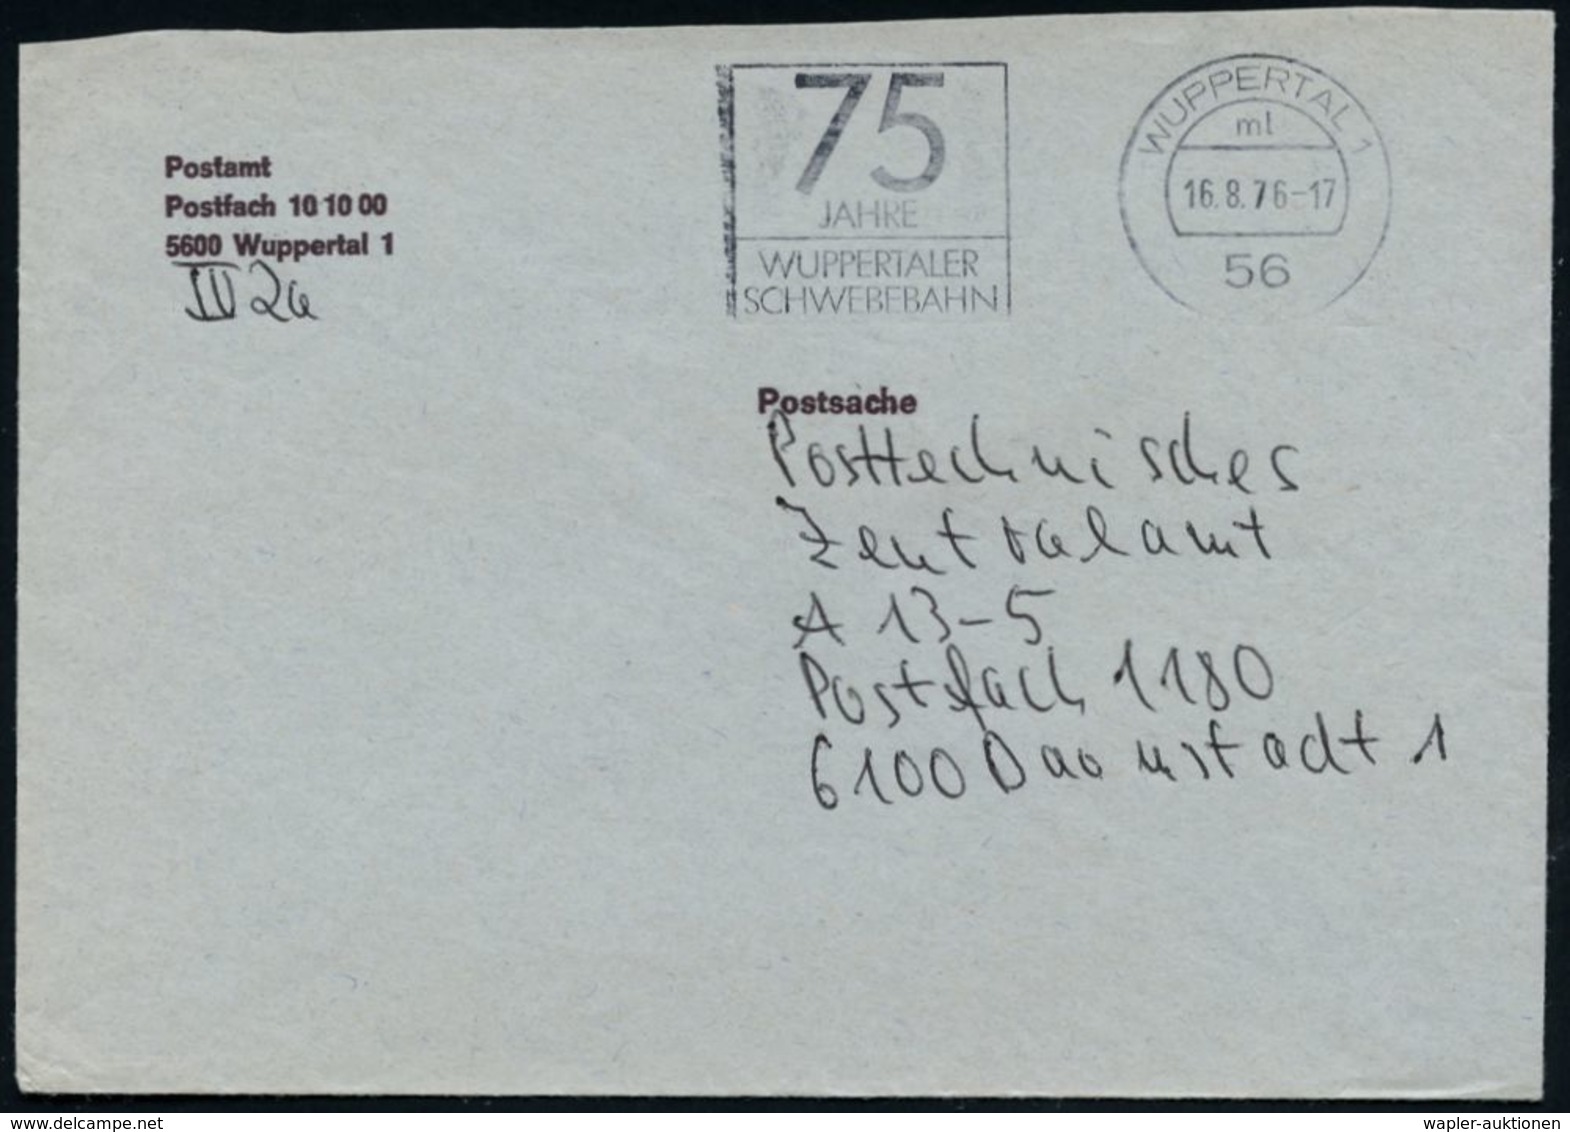 75
JAHRE
WUPPERTALER
SCHWEBEBAHN
WUPPERTAL 1
ml
16.8.76-17
56
Postamt
Postfach 10 10 00
5600 Wuppertal 1
IV 2a
Postsache
Posttechnisches
Zentralamt
A 13-5
Postfach 1180
6100 Darmstadt 1
www.delcampe.net
wapler-auktionen